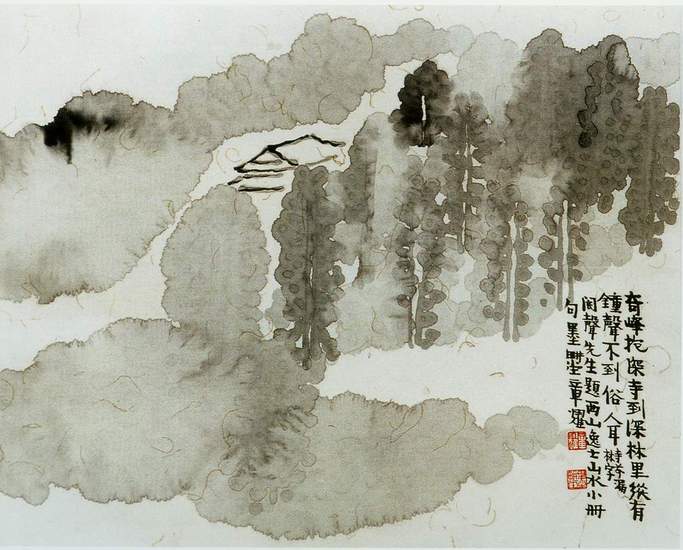 奇峰抱深寺到深林里縱有
鐘聲不到俗人耳
闲聲先生題西山逸士山水小册
句墨
章耀